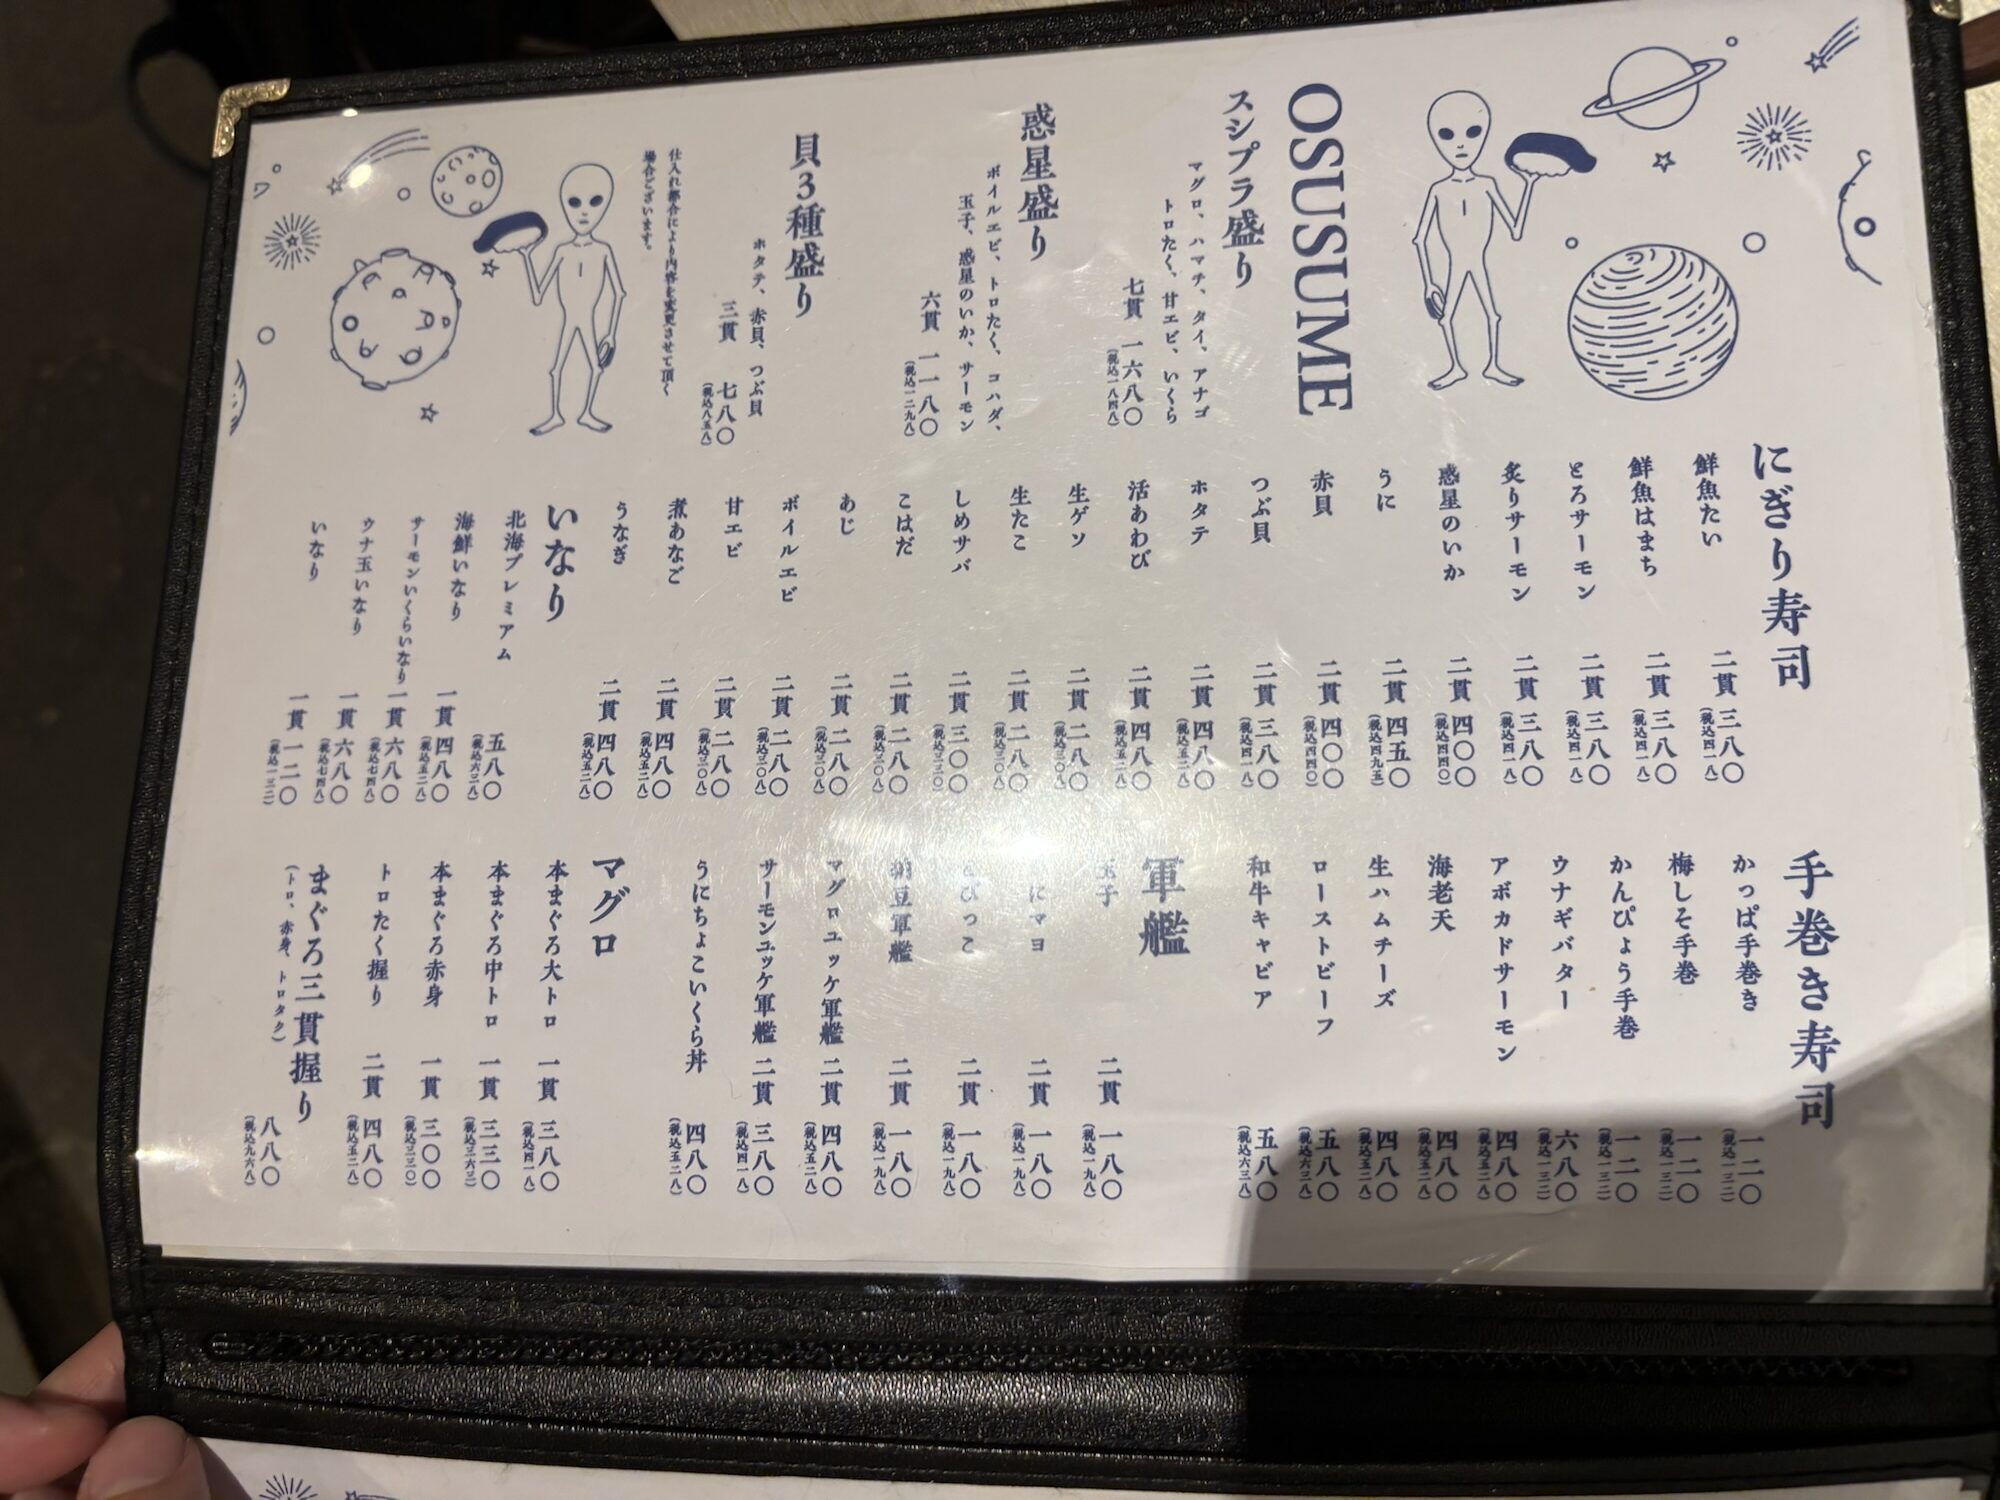 OSUSUME
スシプラ盛り
マグロ、ハマチ、タイ、アナゴ
トロたく、甘エビ、いくら
七貫 一六八〇
(税込一八四八)
惑星盛り
ボイルエビ、トロたく、コハダ、
玉子、惑星のいか、サーモン
六貫 一一八〇
(税込一二九八)
貝3種盛り
ホタテ、赤貝、つぶ貝
三貫 七八〇
(税込八五八)
仕入れ都合により内容を変更させて頂く
場合ございます。
にぎり寿司
鮮魚たい 二貫 三八〇
(税込四一八)
鮮魚はまち 二貫 三八〇
(税込四一八)
とろサーモン 二貫 三八〇
(税込四一八)
炙りサーモン 二貫 三八〇
(税込四一八)
惑星のいか 二貫 四〇〇
(税込四四〇)
うに 二貫 四五〇
(税込四九五)
赤貝 二貫 四〇〇
(税込四四〇)
つぶ貝 二貫 三八〇
(税込四一八)
ホタテ 二貫 四八〇
(税込五二八)
活あわび 二貫 四八〇
(税込五二八)
生ゲソ 二貫 二八〇
(税込三〇八)
生たこ 二貫 二八〇
(税込三〇八)
しめサバ 二貫 三〇〇
(税込三三〇)
こはだ 二貫 二八〇
(税込三〇八)
あじ 二貫 二八〇
(税込三〇八)
ボイルエビ 二貫 二八〇
(税込三〇八)
甘エビ 二貫 二八〇
(税込三〇八)
煮あなご 二貫 四八〇
(税込五二八)
うなぎ 二貫 四八〇
(税込五二八)
いなり
北海プレミアム 五八〇
(税込六三八)
海鮮いなり 一貫 四八〇
(税込五二八)
サーモンいくらいなり 一貫 六八〇
(税込七四八)
ウナ玉いなり 一貫 六八〇
(税込七四八)
いなり 一貫 一二〇
(税込一三二)
手巻き寿司
かっぱ手巻き 一二〇
(税込一三二)
梅しそ手巻 一二〇
(税込一三二)
かんぴょう手巻 一二〇
(税込一三二)
ウナギバター 六八〇
(税込一三二)
アボカドサーモン 四八〇
(税込五二八)
海老天 四八〇
(税込五二八)
生ハムチーズ 四八〇
(税込五二八)
ローストビーフ 五八〇
(税込六三八)
和牛キャビア 五八〇
(税込六三八)
軍艦
玉子 二貫 一八〇
(税込一九八)
にマヨ 二貫 一八〇
(税込一九八)
びっこ 二貫 一八〇
(税込一九八)
納豆軍艦 二貫 一八〇
(税込一九八)
マグロユッケ軍艦 二貫 四八〇
(税込五二八)
サーモンユッケ軍艦 二貫 三八〇
(税込四一八)
うにちょこいくら丼 四八〇
(税込五二八)
マグロ
本まぐろ大トロ 一貫 三八〇
(税込四一八)
本まぐろ中トロ 一貫 三三〇
(税込三六三)
本まぐろ赤身 一貫 三〇〇
(税込三三〇)
トロたく握り 二貫 四八〇
(税込五二八)
まぐろ三貫握り 八八〇
(トロ、赤身、トロタク)
(税込九六八)